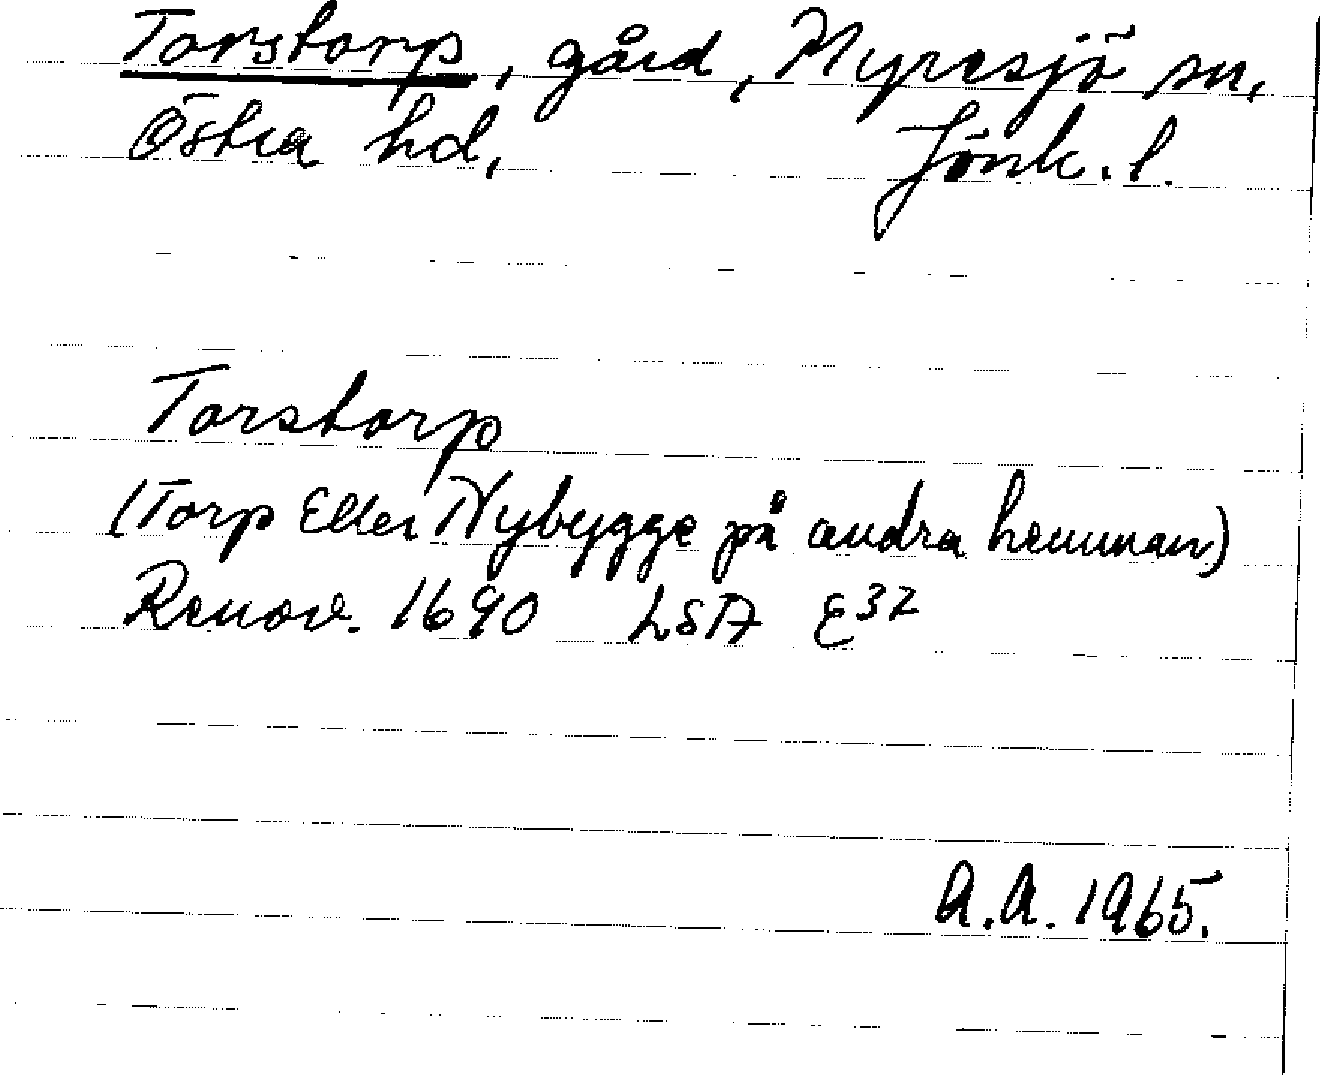 Torstorp, gård, Myresjö sn,
Östra hd, Jönk. l.
Torstorp
(Torp Eller Nybygge på andra hemman)
Renov. 1690 LSA E32
A.A. 1965.